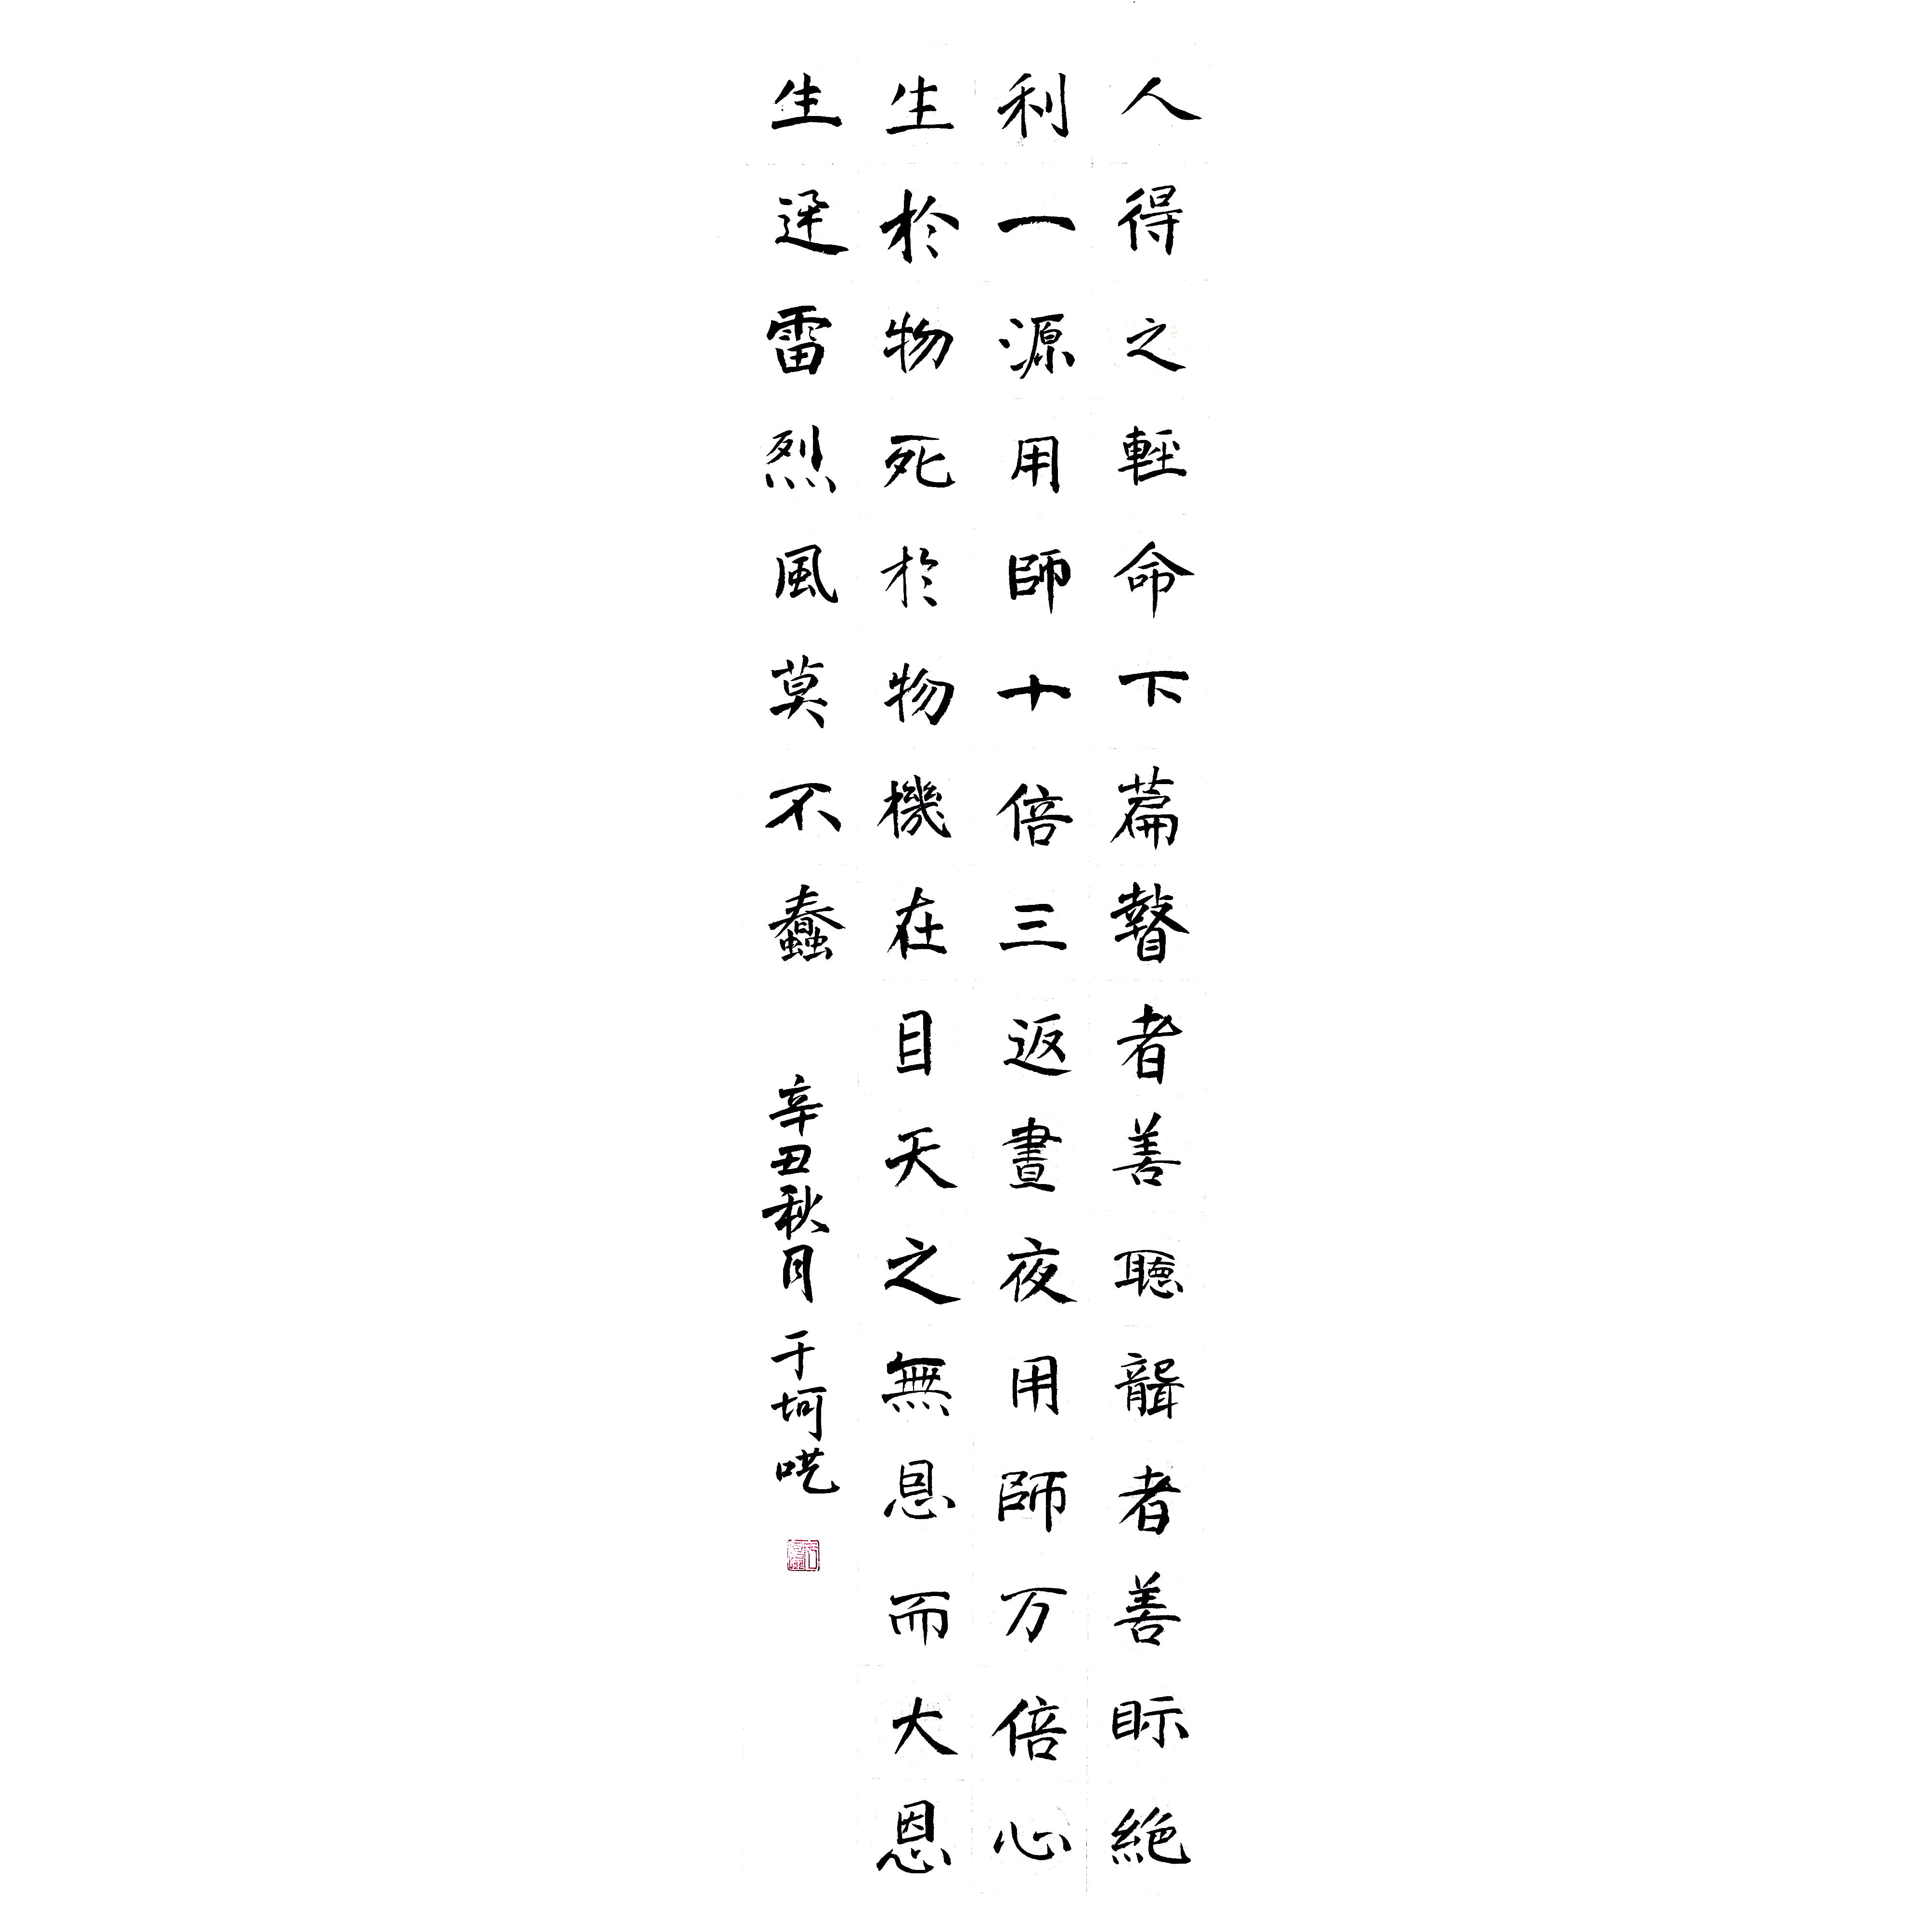 人得之輕命下篇瞽者善聽聾者善眎絶
利一源用師十倍三返晝夜用師万倍心
生於物死於物機在目天之無恩而大恩
生迅雷烈風莫不蠢
辛丑秋月 于坷